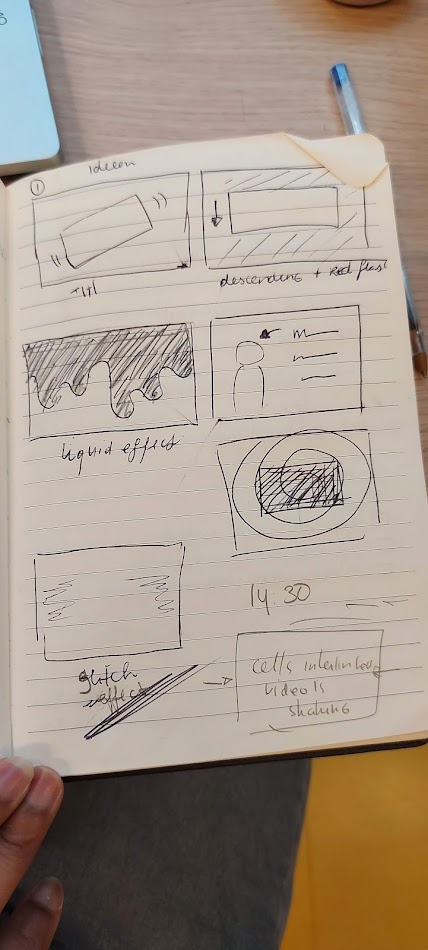 1
ideen
Tilt
descending + Red flash
liquid effect
glitch
effect
14 30
cells interlinked
video is
shaking